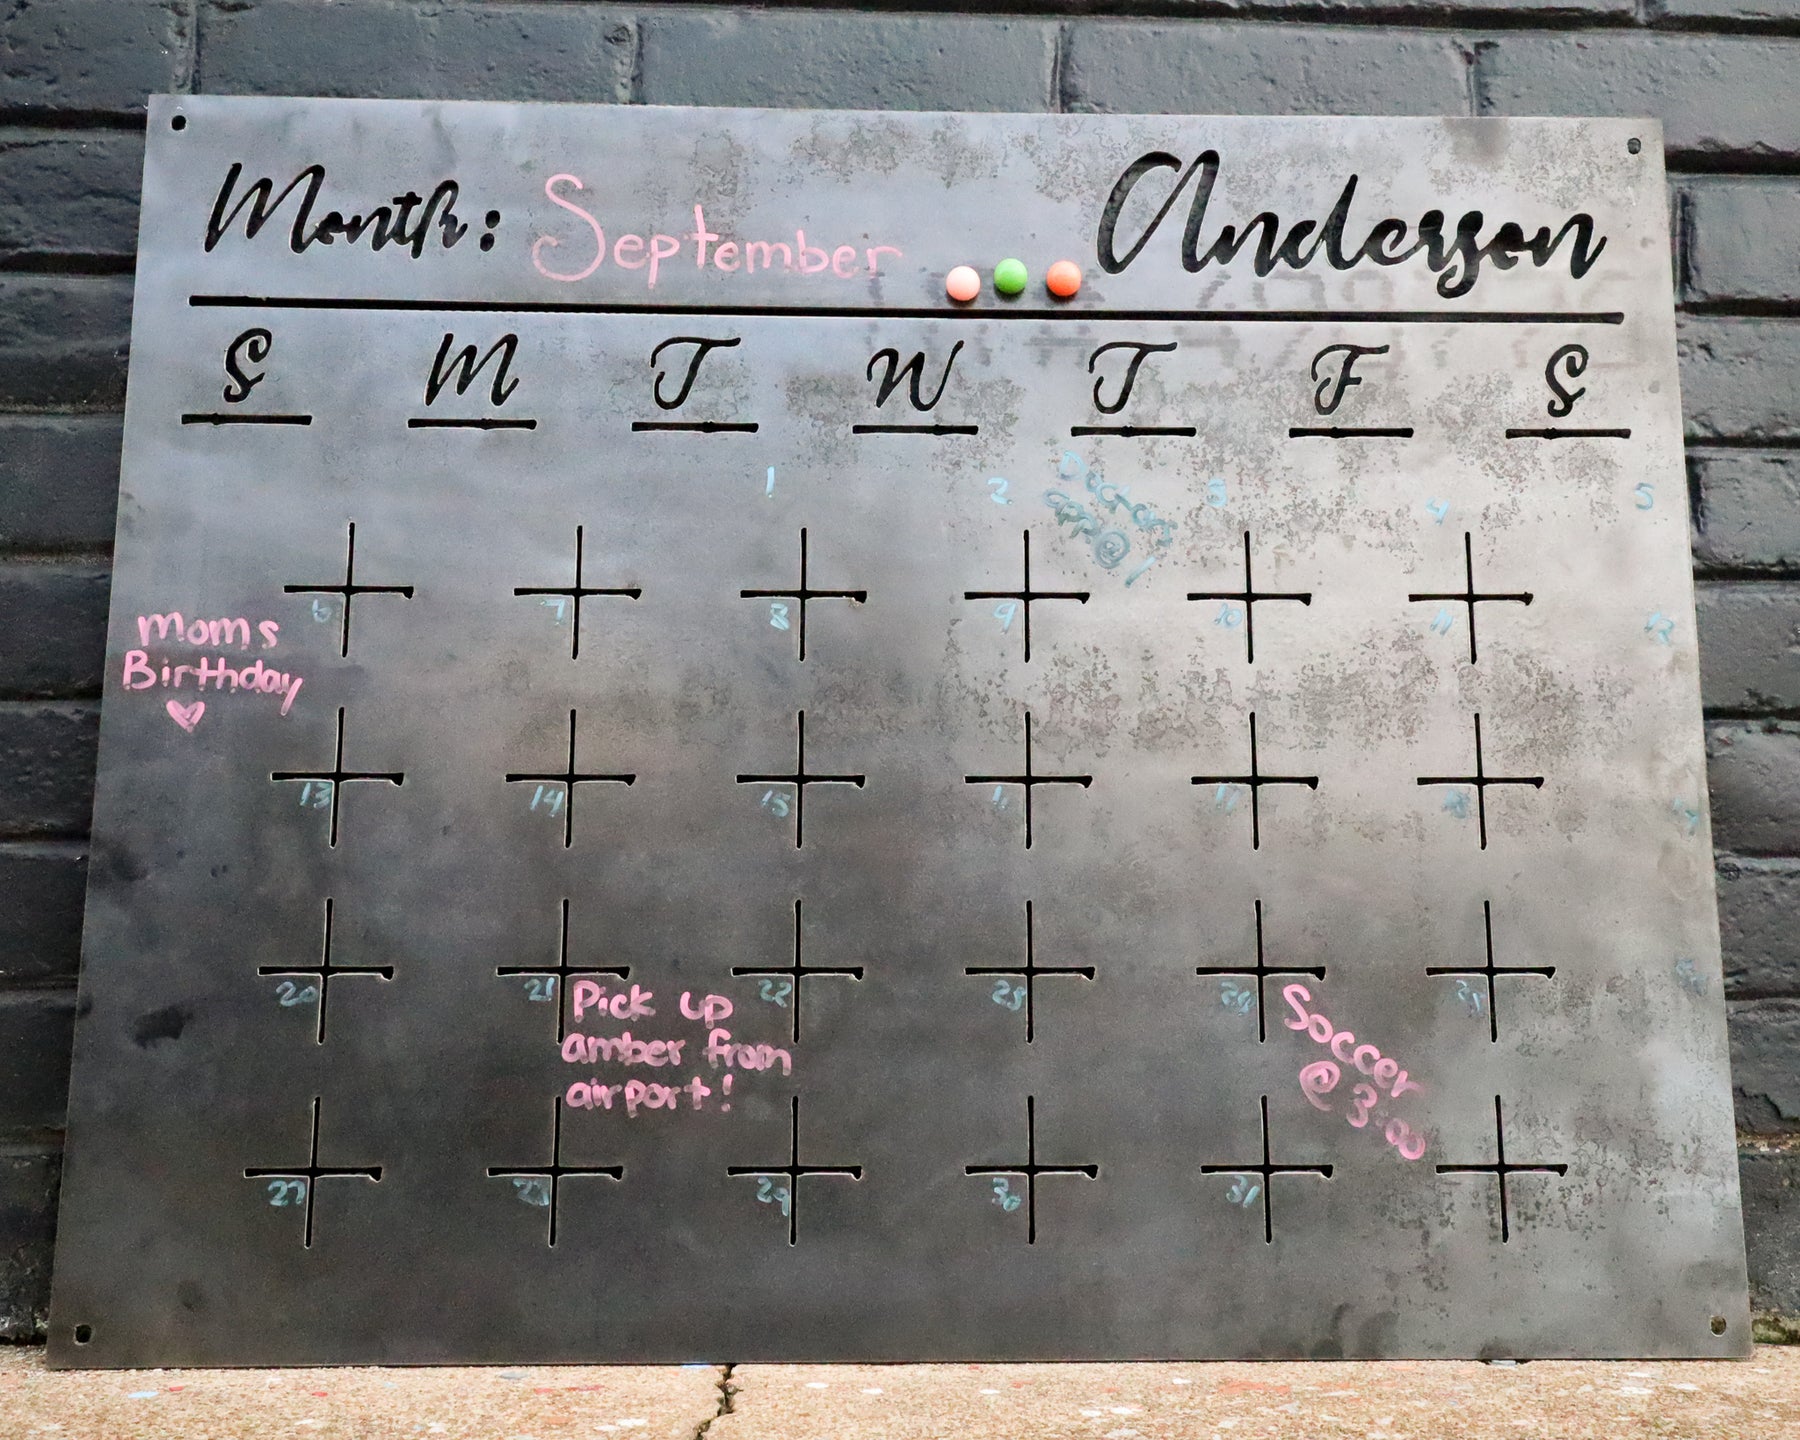 Month: September Anderson
S M T W T F S
1 2 3 4 5
Doctors
app@1
6 7 8 9 10 11 12
Moms
Birthday
13 14 15 17 18
20 21 22 23
Pick up
amber from
airport!
Soccer
@ 3:00
27 28 29 30 31